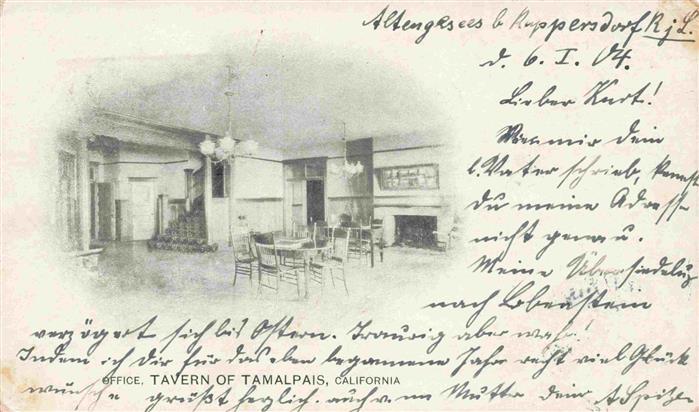 Altengesees b. Ruppersdorf R.j.L.
d. 6. I. 04.
Lieber Kurt!
Wie mir Dein
l. Vater schrieb, kennst
Du meine Adresse
nicht genau.
Meine Übersiedelung
nach Lobenstein
verzögert sich bis Ostern. Traurig aber wahr!
Indem ich Dir für das eben begonnene Jahr recht viel Glück
wünsche grüßt herzlich, auch v. m. Mutter Dein A. Spitzer
OFFICE, TAVERN OF TAMALPAIS, CALIFORNIA